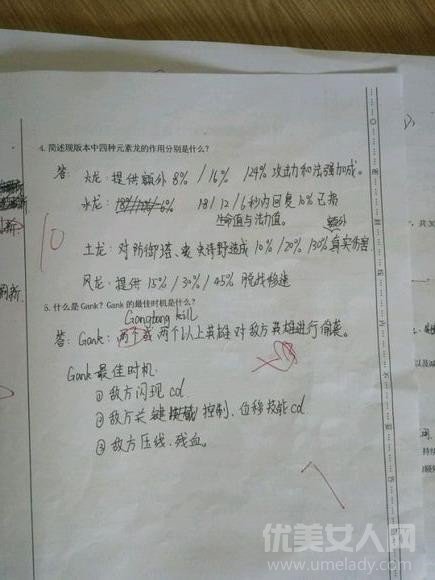 4. 简述现版本中四种元素龙的作用分别是什么?
答: 火龙: 提供额外 8% / 16% / 24% 攻击力和法强加成。
水龙: 18 / 12 / 6 秒内回复 10% 已损
生命值与法力值。
额外
土龙: 对防御塔、史诗野怪造成 10% / 20% / 30% 真实伤害
风龙: 提供 15% / 30% / 45% 脱战移速
10
5. 什么是Gank? Gank 的最佳时机是什么?
Gangbang kill
答: Gank: 两个或两个以上英雄对敌方英雄进行偷袭。
Gank 最佳时机
① 敌方闪现 cd
② 敌方关键控制、位移技能cd
③ 敌方压线、残血。
7
刷新
优美女人网
www.umelady.com